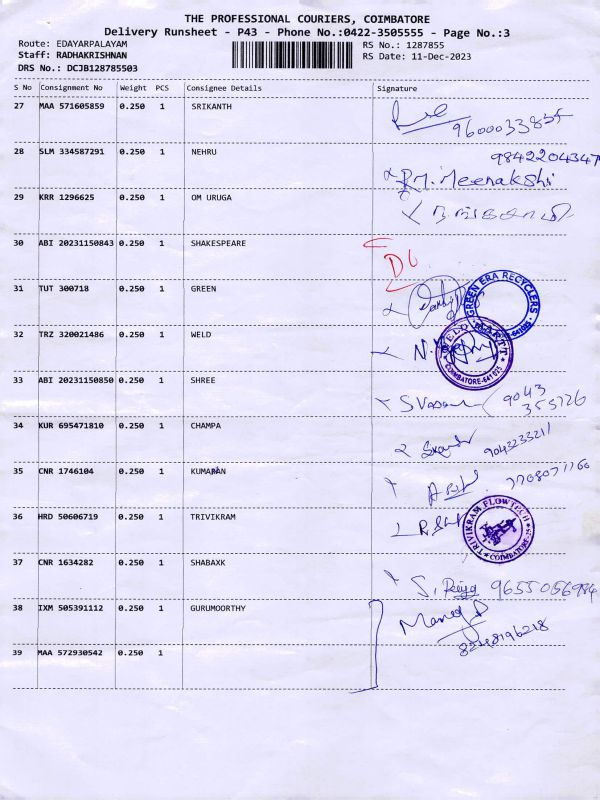 THE PROFESSIONAL COURIERS, COIMBATORE
Delivery Runsheet - P43 - Phone No.:0422-3505555 - Page No.:3
Route: EDAYARPALAYAM RS No.: 1287855
Staff: RADHAKRISHNAN RS Date: 11-Dec-2023
DRS No.: DCJB128785503
S No Consignment No Weight PCS Consignee Details Signature
27 MAA 571605859 0.250 1 SRIKANTH
28 SLM 334587291 0.250 1 NEHRU 9842204347
R.M. Meenakshi
29 KRR 1296625 0.250 1 OM URUGA
30 ABI 20231150843 0.250 1 SHAKESPEARE
31 TUT 300718 0.250 1 GREEN
GREEN ERA RECYCLERS
32 TRZ 320021486 0.250 1 WELD
WELD MARTT
COIMBATORE-641 025
33 ABI 20231150850 0.250 1 SHREE
34 KUR 695471810 0.250 1 CHAMPA
9042233211
35 CNR 1746104 0.250 1 KUMARAN
36 HRD 50606719 0.250 1 TRIVIKRAM
TRIVIKRAM FLOWTECH
COIMBATORE-25
37 CNR 1634282 0.250 1 SHABAXK
S. Priya 9655056984
38 IXM 505391112 0.250 1 GURUMOORTHY
8248196218
39 MAA 572930542 0.250 1